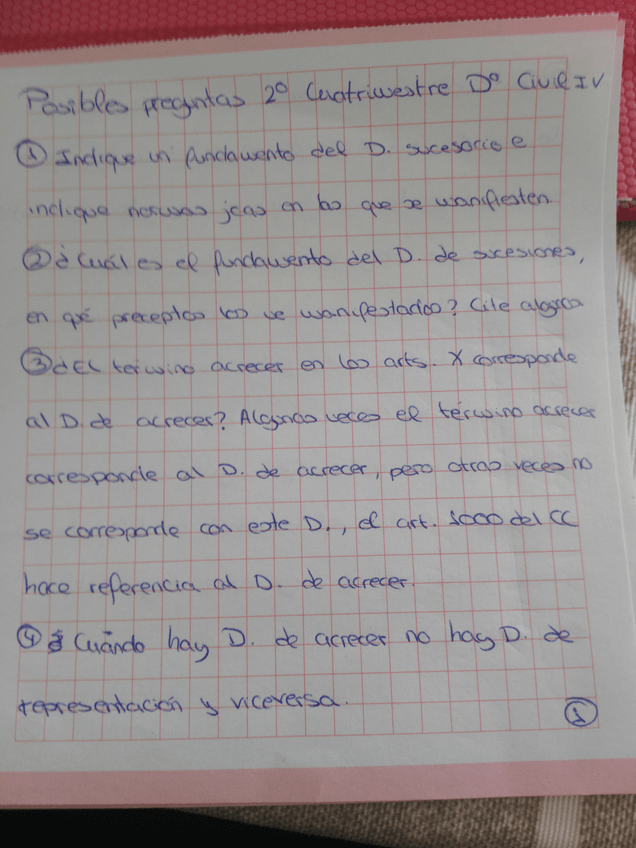 Posibles preguntas 2º Cuatrimestre Dº Civil IV
① Indique un fundamento del D. sucesorio e
indique normas jcas en las que se manifiesten.
② ¿Cuál es el fundamento del D. de sucesiones,
en qué preceptos los ve manifestados? Cite alguno
③ ¿El término acrecer en los arts. X corresponde
al D. de acrecer? Algunas veces el término acrecer
corresponde al D. de acrecer, pero otras veces no
se corresponde con este D., el art. 1000 del CC
hace referencia al D. de acrecer.
④ Cuándo hay D. de acrecer no hay D. de
representación y viceversa.
①